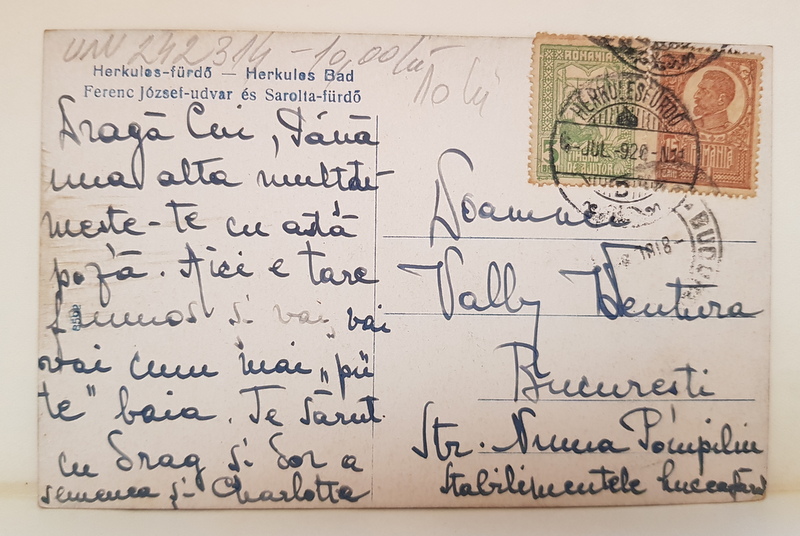 UNV 242314 - 10,00 lei
10 lei
Herkules-fürdő — Herkules Bad
Ferenc József-udvar és Sarolta-fürdő
Dragă Cui, Până
una alta mulțu
meste-te cu astă
poză. Aici e tare
frumos și vai, vai
vai cum mai „pu
te" baia. Te sărut
cu drag și dor a
semenea și Charlotta
ROMANIA
5
TIMBRU DE AJUTOR
ROMANIA
HERKULESFÜRDŐ
JUL.-920
BUCU
Doamnei
Vally Ventura
București
Str. Numa Pompiliu
Stabilimentele Luceafărul